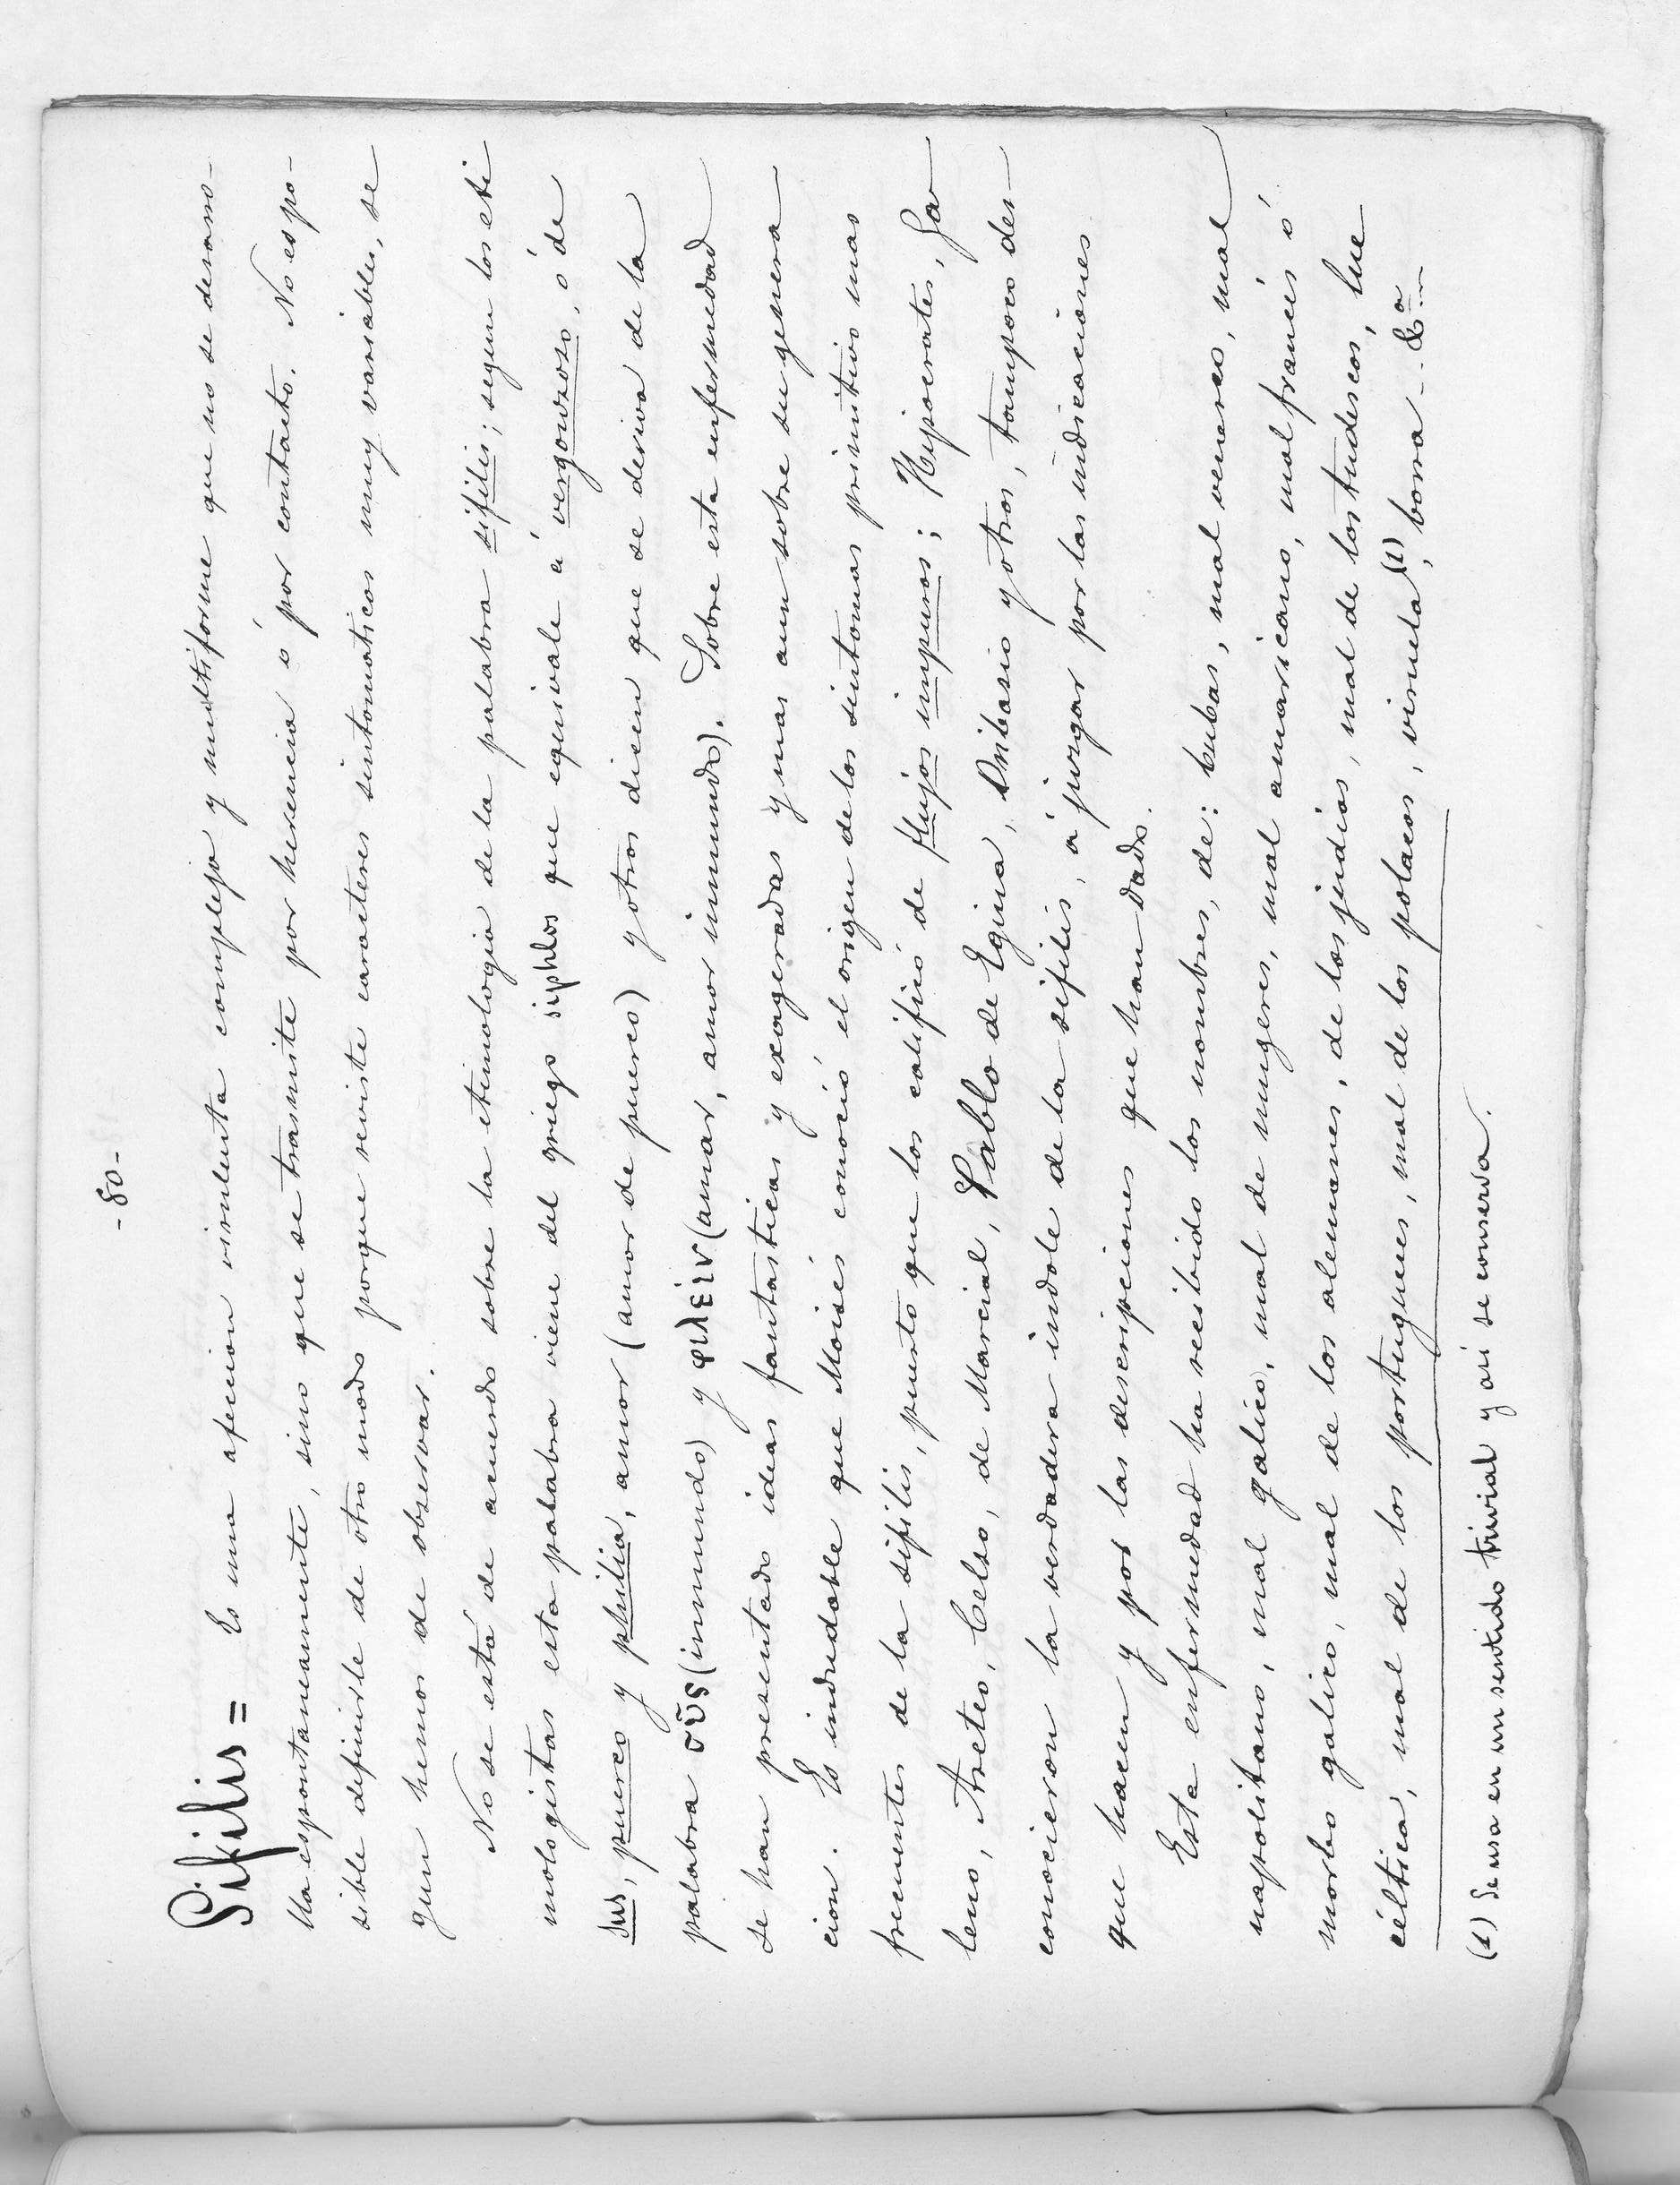 - 80 -
Sifilis = Es una afeccion virulenta compleja y multiforme que no se desarro-
lla espontaneamente, sino que se trasmite por herencia ó por contacto. No es po-
sible definirle de otro modo porque reviste caracteres sintomaticos muy variables, se
gun hemos de observar.
No se está de acuerdo sobre la etimologia de la palabra sifilis; segun los eti
mologistas esta palabra viene del griego siphlos que equivale á vergonzoso, ó de
sus, puerco y philia, amor (amor de puerco) y otros dicen que se deriva de la
palabra σῦς (inmundo) y φιλεῖν (amar, amor inmundo). Sobre esta enfermedad
se han presentado ideas fantasticas y exageradas y mas aun sobre su genera
cion. Es indudable que Moisés conoció el origen de los sintomas primitivos mas
frecuentes de la sifilis, puesto que los calificó de flujos impuros; Hipocrates, Ga
leno, Areteo, Celso, de Marcial, Pablo de Egina, Oribasio y otros, tampoco des-
conocieron la verdadera indole de la sifilis, á juzgar por las indicaciones
que hacen y por las descripciones que han dado.
Esta enfermedad ha recibido los nombres, de: bubas, mal venereo, mal
napolitano, mal galico, mal de mugeres, mal americano, mal francés ó
morbo galico, mal de los alemanes, de los judios, mal de los tudescos, lue
céltica, mal de los portugueses, mal de los polacos, viruela (1), borra - &a
(1) Se usa en un sentido trivial y asi se conserva.